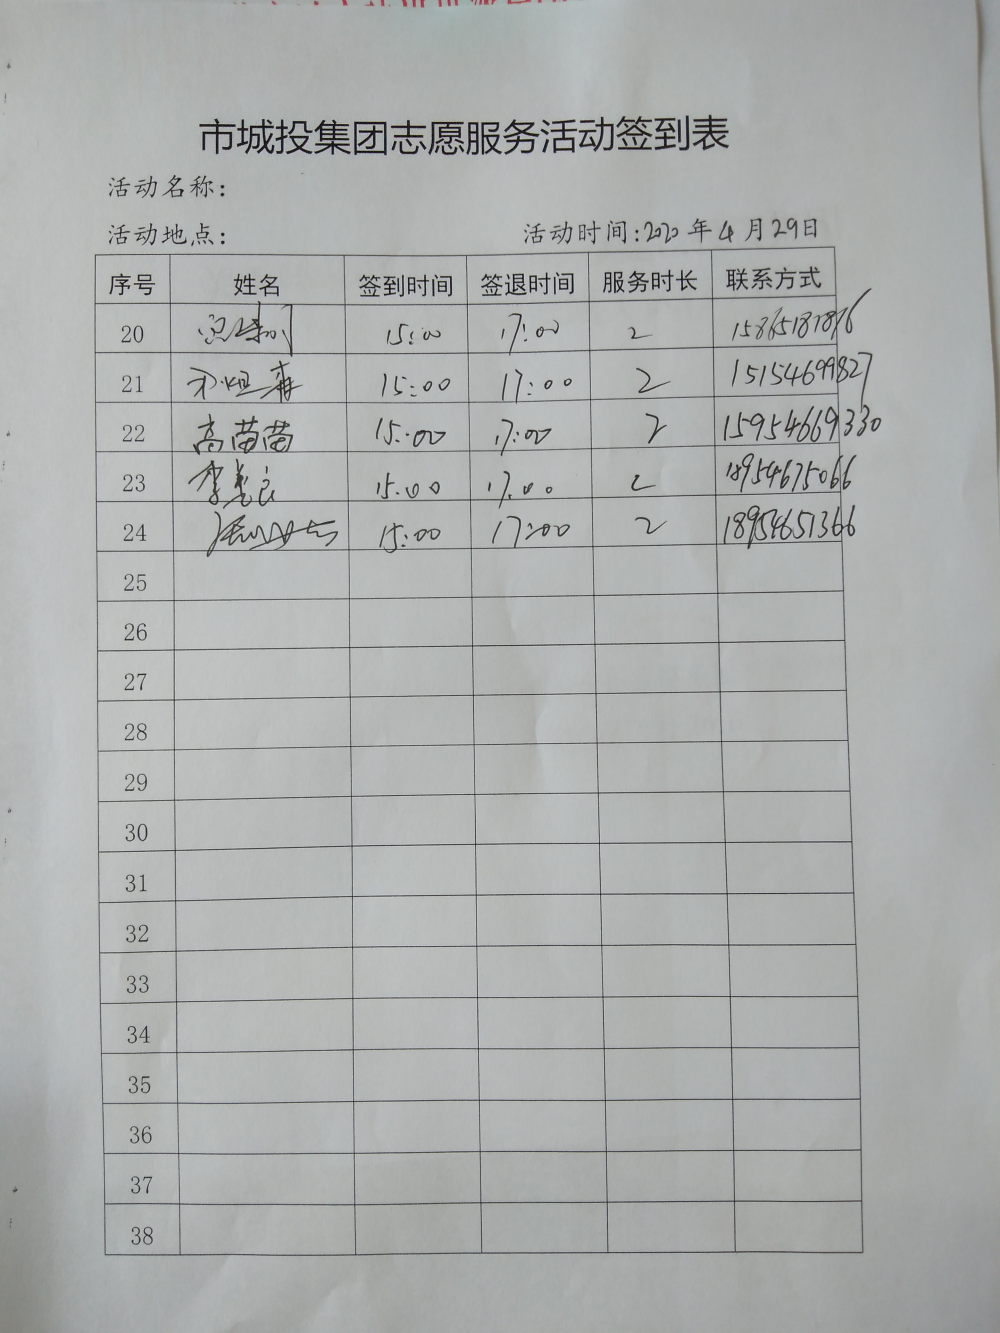 市城投集团志愿服务活动签到表
活动名称:
活动地点: 活动时间:2020年4月29日
序号 姓名 签到时间 签退时间 服务时长 联系方式
20 15:00 17:00 2 15865181876
21 15:00 17:00 2 15154699827
22 高苗苗 15:00 17:00 2 15954669330
23 15:00 17:00 2 18954675066
24 15:00 17:00 2 18954651366
25
26
27
28
29
30
31
32
33
34
35
36
37
38